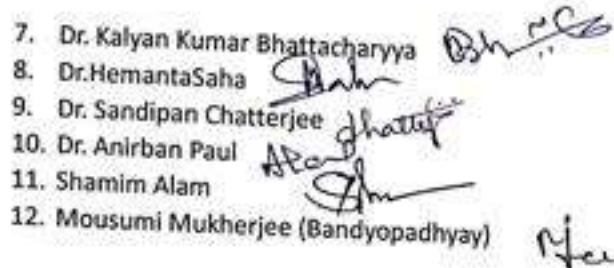 7. Dr. Kalyan Kumar Bhattacharyya
8. Dr.HemantaSaha
9. Dr. Sandipan Chatterjee
10. Dr. Anirban Paul
11. Shamim Alam
12. Mousumi Mukherjee (Bandyopadhyay)